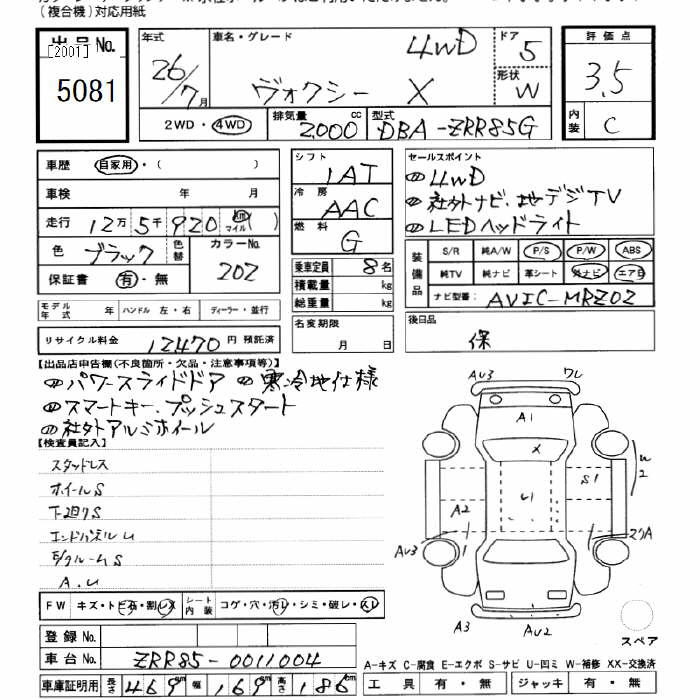 (複合機)対応用紙
出品No. 年式 車名・グレード 4WD ドア 5 評価点
[2001]
5081 26/7月 ヴォクシー X 形状 W 3.5
2WD・4WD 排気量 2000 cc 型式 DBA-ZRR85G 内装 C
車歴 自家用・( ) シフト IAT セールスポイント
車検 年 月 冷房 AAC 4WD
走行 12万5千920 km マイル ( ) 燃料 G 社外ナビ、地デジTV
LEDヘッドライト
色 ブラック 色替 カラーNo. 202 乗車定員 8名
保証書 有・無 積載量 kg
装備品 S/R 純A/W P/S P/W ABS
純TV 純ナビ 革シート 外ナビ エアB
モデル年式 年 ハンドル 左・右 ディーラー・並行 総重量 kg ナビ型番: AVIC-MRZ02
リサイクル料金 12470 円 預託済 名変期限 月 日 後日品 保
【出品店申告欄(不良箇所・欠品・注意事項等)】
パワースライドドア 寒冷地仕様
スマートキー、プッシュスタート
社外アルミホイール
【検査員記入】
スタッドレス
ホイールS
下廻りS
エンドパネルU
E/クルームS
A.U
AV3 ワレ
A1
X
U1 S1 W2
A2
AV3
A3 AU2
スペア
FW キズ・トビ石・割レ・ス シート内装 コゲ・穴・汚レ・シミ・破レ・スレ
登録No.
車台No. ZRR85-0011004
A-キズ C-腐食 E-エクボ S-サビ U-凹ミ W-補修 XX-交換済
車庫証明用 長さ 469cm 幅 169cm 高さ 186cm 工具 有・無 ジャッキ 有・無